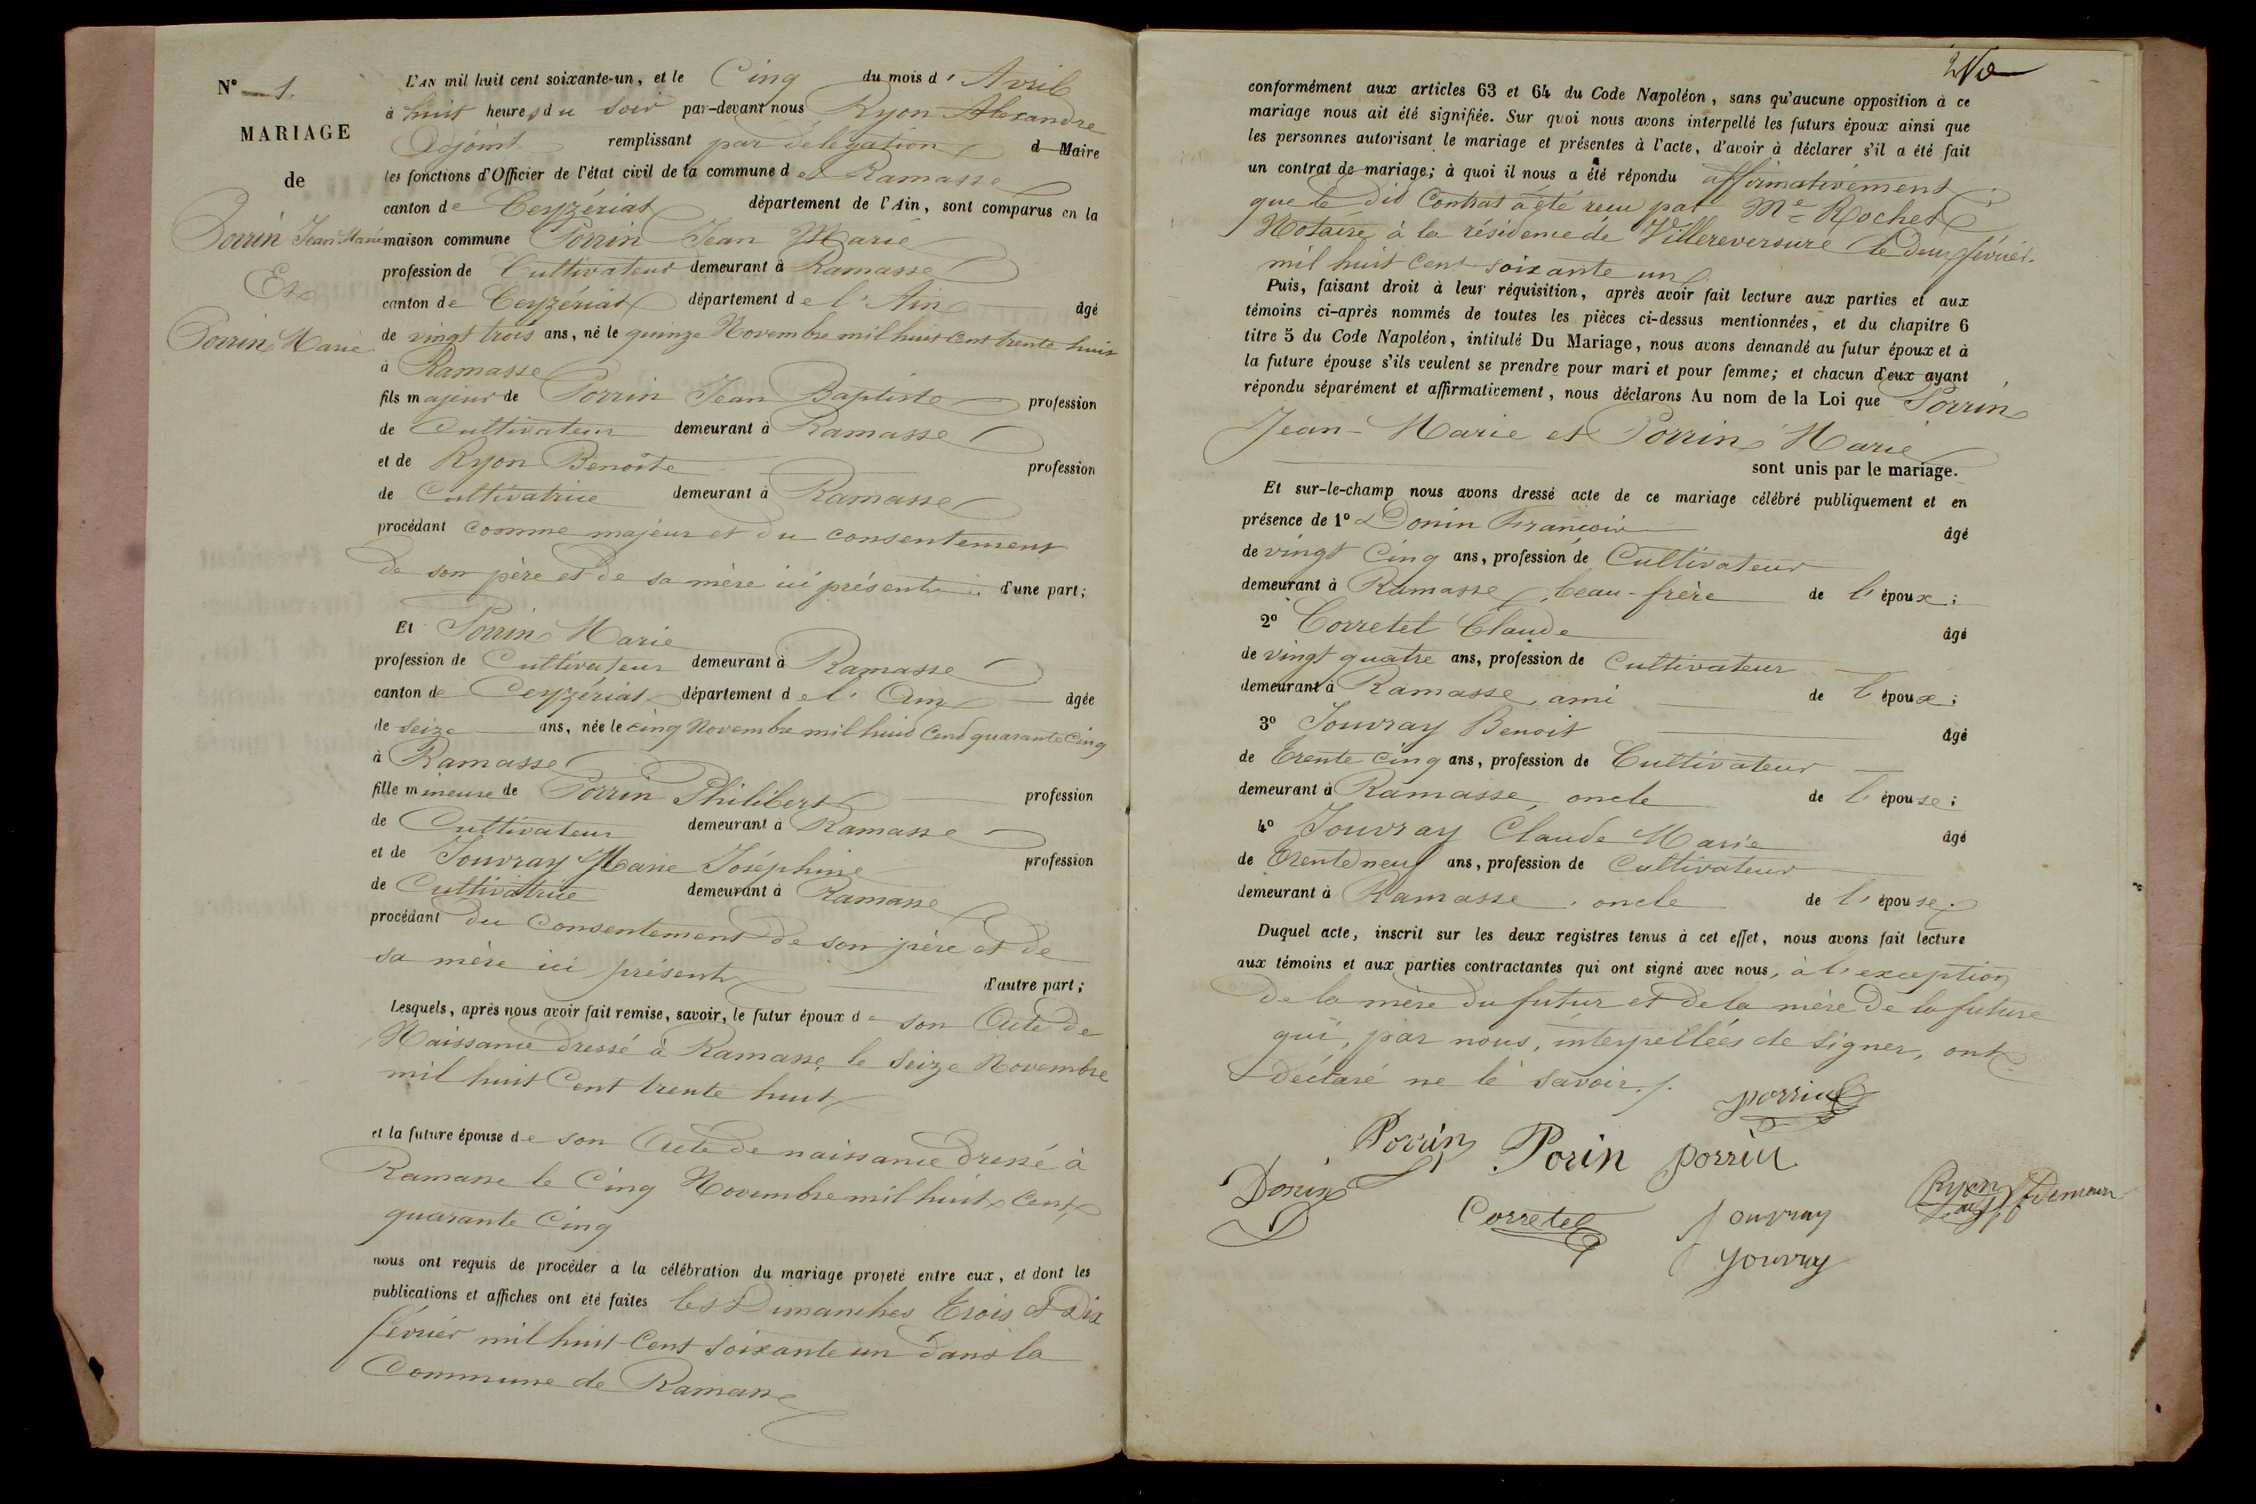 N° 1.
MARIAGE
de
Porrin Jean Marie
Et
Porrin Marie
L'AN mil huit cent soixante-un, et le Cinq du mois d' Avril
à huit heures du soir par-devant nous Ryon Alexandre
Adjoint remplissant par délégation d Maire
les fonctions d'Officier de l'état civil de la commune de Ramasse
canton de Ceyzériat département de l'Ain, sont comparus en la
maison commune Porrin Jean Marie
profession de Cultivateur demeurant à Ramasse
canton de Ceyzériat département de l'Ain âgé
de vingt trois ans, né le quinze Novembre mil huit cent trente huit
à Ramasse
fils majeur de Porrin Jean Baptiste profession
de Cultivateur demeurant à Ramasse
et de Ryon Benoîte profession
de Cultivatrice demeurant à Ramasse
procédant comme majeur et du consentement
de son père et de sa mère ici présents d'une part;
Et Porrin Marie
profession de Cultivateur demeurant à Ramasse
canton de Ceyzériat département de l'Ain âgée
de seize ans, née le cinq Novembre mil huit cent quarante cinq
à Ramasse
fille mineure de Porrin Philibert profession
de Cultivateur demeurant à Ramasse
et de Jouvray Marie Joséphine profession
de Cultivatrice demeurant à Ramasse
procédant du consentement de son père et de
sa mère ici présents d'autre part;
Lesquels, après nous avoir fait remise, savoir, le futur époux de son Acte de
Naissance dressé à Ramasse le Seize Novembre
mil huit Cent trente huit
et la future épouse de son Acte de naissance dressé à
Ramasse le Cinq Novembre mil huit Cent
quarante Cinq
nous ont requis de procéder à la célébration du mariage projeté entre eux, et dont les
publications et affiches ont été faites les Dimanches trois et Dix
février mil huit Cent soixante un dans la
Commune de Ramasse
conformément aux articles 63 et 64 du Code Napoléon, sans qu'aucune opposition à ce
mariage nous ait été signifiée. Sur quoi nous avons interpellé les futurs époux ainsi que
les personnes autorisant le mariage et présentes à l'acte, d'avoir à déclarer s'il a été fait
un contrat de mariage; à quoi il nous a été répondu affirmativement
que le dit Contrat a été reçu par Me Rochet
Notaire à la résidence de Villereversure le deux février
mil huit Cent soixante un
Puis, faisant droit à leur réquisition, après avoir fait lecture aux parties et aux
témoins ci-après nommés de toutes les pièces ci-dessus mentionnées, et du chapitre 6
titre 5 du Code Napoléon, intitulé Du Mariage, nous avons demandé au futur époux et à
la future épouse s'ils veulent se prendre pour mari et pour femme; et chacun d'eux ayant
répondu séparément et affirmativement, nous déclarons Au nom de la Loi que Porrin
Jean-Marie et Porrin Marie
sont unis par le mariage.
Et sur-le-champ nous avons dressé acte de ce mariage célébré publiquement et en
présence de 1° Donin François âgé
de vingt Cinq ans, profession de Cultivateur
demeurant à Ramasse, beau-frère de l'époux;
2° Corretel Claude âgé
de vingt quatre ans, profession de Cultivateur
demeurant à Ramasse, ami de l'époux;
3° Jouvray Benoit âgé
de trente Cinq ans, profession de Cultivateur
demeurant à Ramasse, oncle de l'épouse;
4° Jouvray Claude Marie âgé
de trente neuf ans, profession de Cultivateur
demeurant à Ramasse, oncle de l'épouse.
Duquel acte, inscrit sur les deux registres tenus à cet effet, nous avons fait lecture
aux témoins et aux parties contractantes qui ont signé avec nous, à l'exception
de la mère du futur et de la mère de la future
qui, par nous, interpellées de signer, ont
déclaré ne le savoir.
porrin
Porrin Porin porrin
Donin
Corretel
Jouvray
Ryon
Jouvray